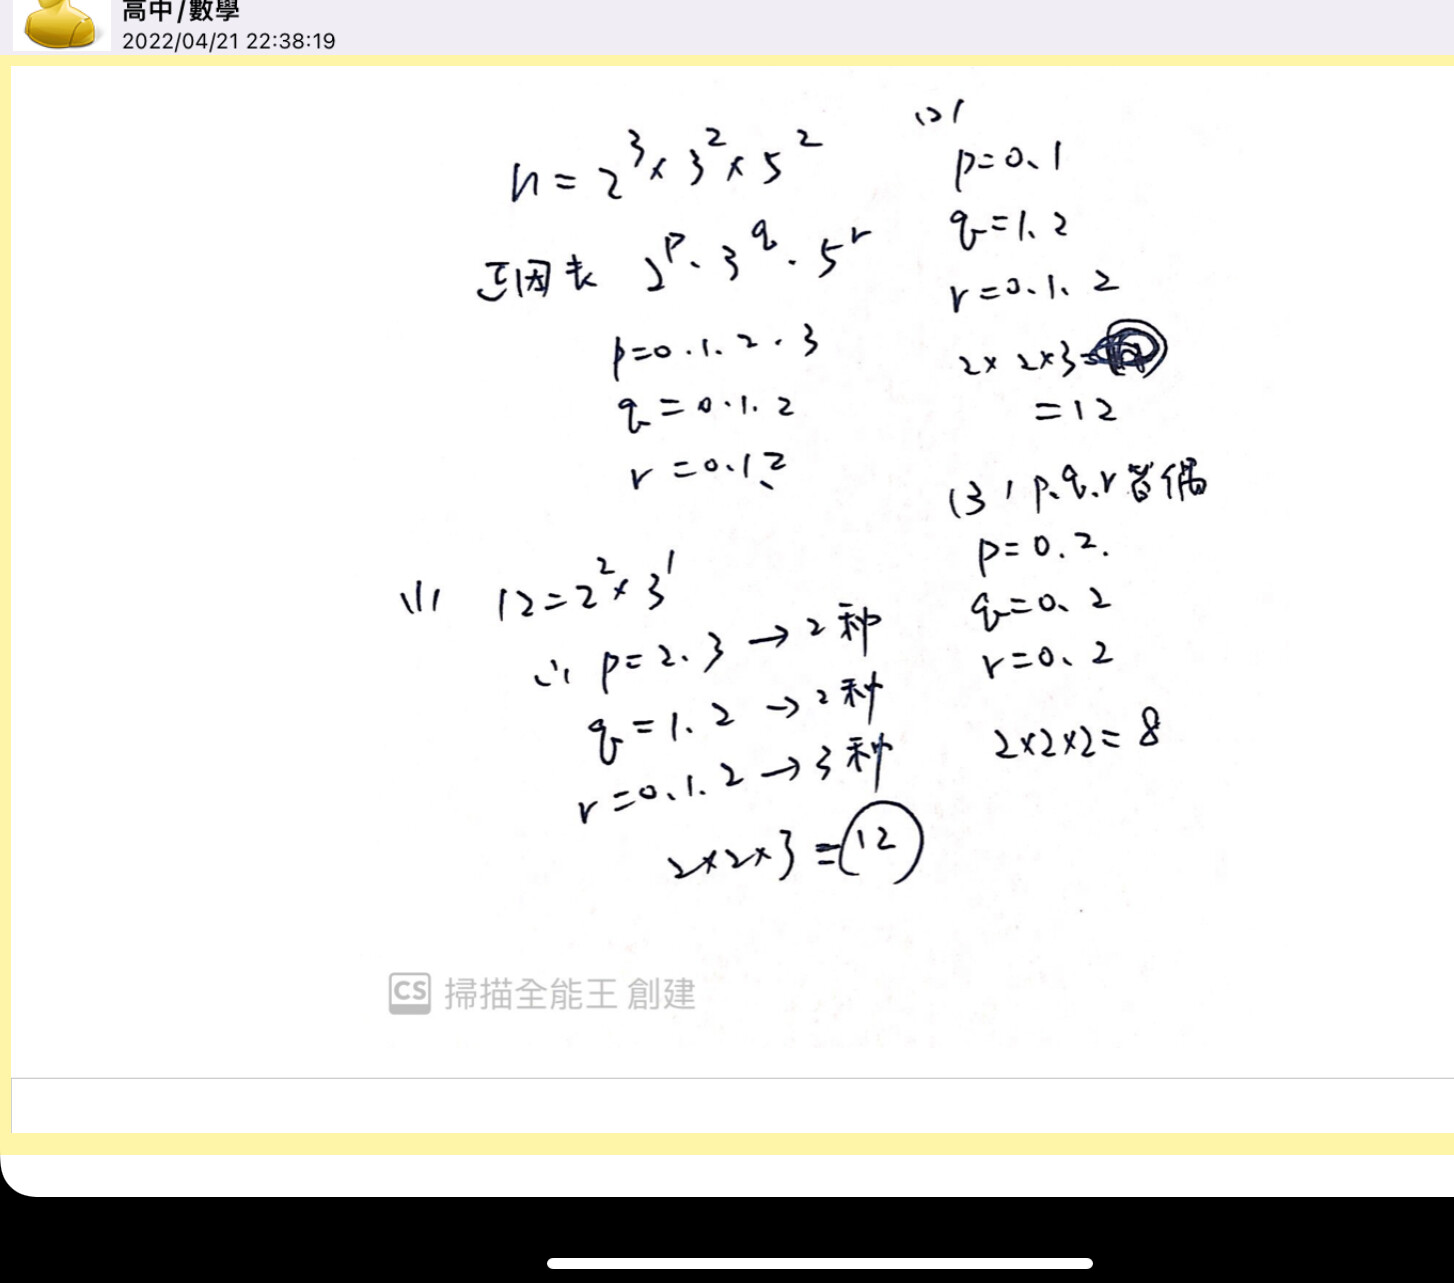 高中/數學
2022/04/21 22:38:19
n = 2³ × 3² × 5²
正因數 2^p · 3^q · 5^r
p=0.1.2.3
q=0.1.2
r=0.1、2
(1) 12=2²×3¹
∴ p=2.3 → 2种
q=1.2 → 2种
r=0.1.2 → 3种
2×2×3=12
(2)
p=0、1
q=1、2
r=0.1、2
2×2×3=
=12
(3) p.q.r皆偶
p=0.2.
q=0、2
r=0、2
2×2×2=8
CS 掃描全能王 創建